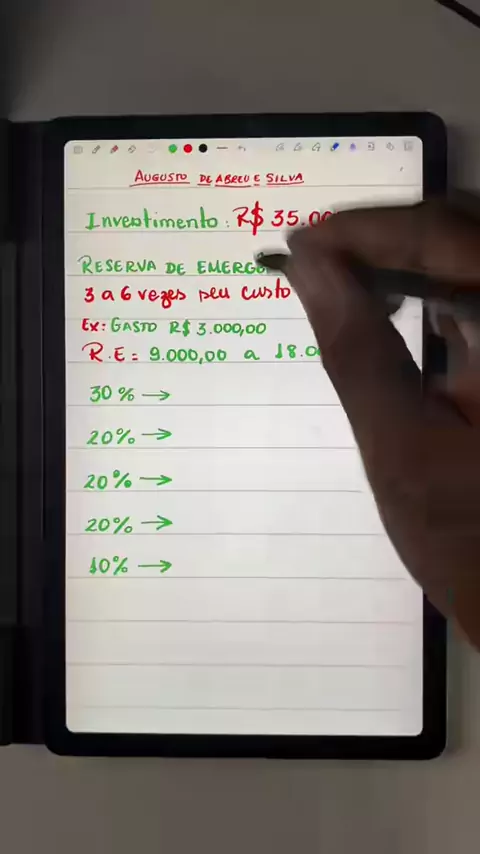 AUGUSTO DE ABREU E SILVA
Investimento: R$ 35.00
RESERVA DE EMERG
3 a 6 vezes seu custo
Ex: GASTO R$ 3.000,00
R.E = 9.000,00 a 18.0
30% →
20% →
20% →
20% →
10% →